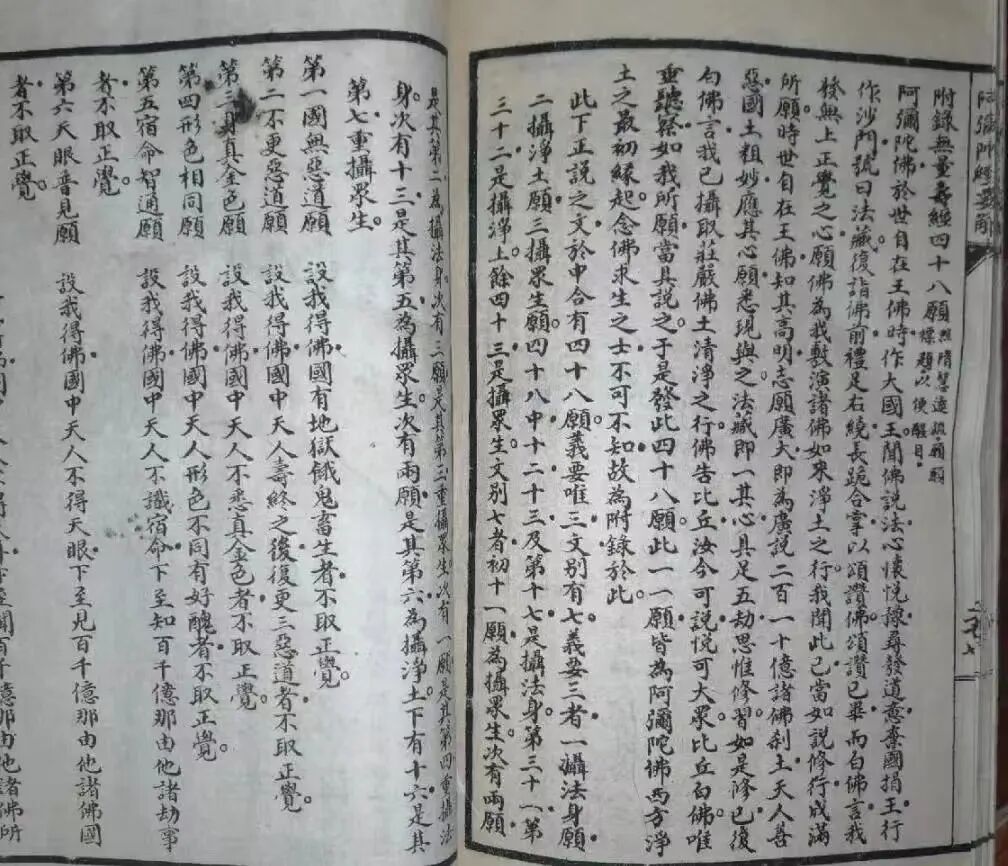 阿彌陀經要解
附錄無量壽經四十八願 照隋慧遠疏願願
標題以便醒目。
阿彌陀佛於世自在王佛時作大國王聞佛說法心懷悅豫尋發道意棄國捐王行
作沙門號曰法藏復詣佛前禮足右繞長跪合掌以頌讚佛頌讚已畢而白佛言我
發無上正覺之心願佛為我敷演諸佛如來淨土之行。我聞此已當如說修行成滿
所願時世自在王佛知其高明志願廣大即為廣說二百一十億諸佛剎土天人善
惡國土粗妙應其心願悉現與之。法藏即一其心具足五劫思惟修習如是修已復
白佛言我已攝取莊嚴佛土清淨之行。佛告比丘汝今可說悅可大眾。比丘白佛唯
垂聽察如我所願當具說之。于是發此四十八願。此一一願皆為阿彌陀佛西方淨
土之最初緣起。念佛求生之士不可不知故為附錄於此
此下正說之文於中合有四十八願。義要唯三文別有七。義要三者一攝法身願
二攝淨土願三攝眾生願。四十八中十二十三及第十七是攝法身。第三十一第
三十二是攝淨土餘四十三是攝眾生文別七者初十一願為攝眾生次有兩願
是其第二為攝法身次有三願是其第三重攝眾生次有一願是其第四重攝法
身。次有十三是其第五為攝眾生次有兩願是其第六為攝淨土下有十六是其
第七重攝眾生。
第一國無惡道願 設我得佛國有地獄餓鬼畜生者不取正覺。
第二不更惡道願 設我得佛國中天人壽終之後復更三惡道者不取正覺。
第三身真金色願 設我得佛國中天人不悉真金色者不取正覺。
第四形色相同願 設我得佛國中天人形色不同有好醜者不取正覺。
第五宿命智通願 設我得佛國中天人不識宿命下至知百千億那由他諸劫事
者不取正覺。
第六天眼普見願 設我得佛國中天人不得天眼下至見百千億那由他諸佛國
者不取正覺。